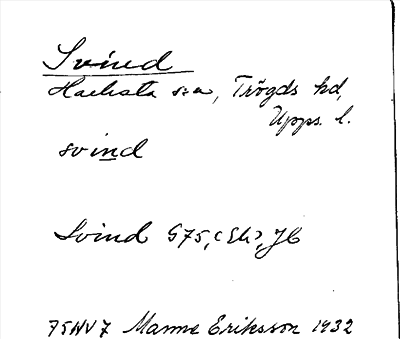 Svind
Hacksta sn, Trögds hd,
Upps. l.
svind
Svind G75, (Ek), JC
75NV7 Manne Eriksson 1932